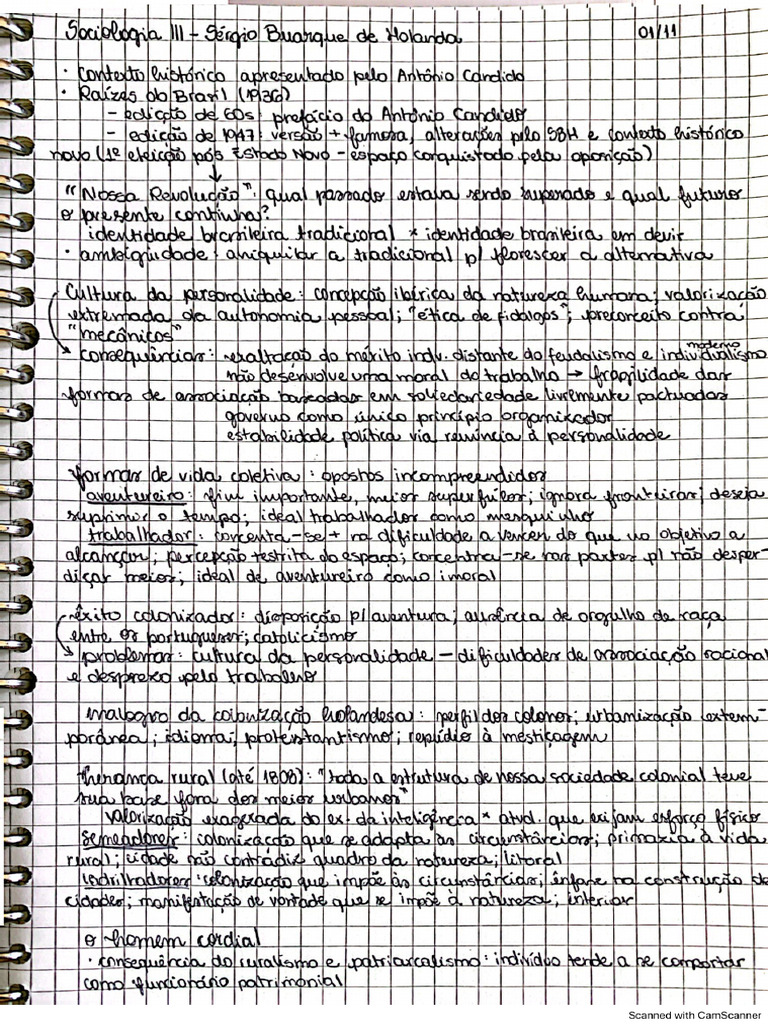 Sociologia III - Sérgio Buarque de Holanda 01/11
· contexto histórico apresentado pelo Antônio Candido
· Raízes do Brasil (1936)
- edição de 60s: prefácio do Antônio Candido
- edição de 1947: versão + famosa, alterações pelo SBH e contexto histórico
novo (1ª eleição pós Estado Novo - espaço conquistado pela oposição)
"Nossa Revolução": qual passado estava sendo superado e qual futuro
o presente continha?
identidade brasileira tradicional * identidade brasileira em devir
· ambiguidade: aniquilar a tradicional p/ florescer a alternativa
Cultura da personalidade: concepção ibérica da natureza humana; valorização
extremada da autonomia pessoal; "ética de fidalgos"; preconceito contra
"mecânicos"
consequências: exaltação do mérito indv. distante do feudalismo e individualismo moderno
não desenvolve uma moral do trabalho → fragilidade das
formas de associação baseadas em solidariedade livremente pactuadas
governo como único princípio organizador
estabilidade política via renúncia à personalidade
formas de vida coletiva: opostos incompreendidos
aventureiro: fim importante, meios supérfulos; ignora fronteiras; deseja
suprimir o tempo; ideal trabalhador como mesquinho
trabalhador: concenta-se + na dificuldade a vencer do que no objetivo a
alcançar; percepção restrita do espaço; concentra-se nas partes p/ não desper-
diçar meios; ideal de aventureiro como imoral
êxito colonizador: disposição p/ aventura; ausência de orgulho de raça
entre os portugueses; catolicismo
problemas: cultura da personalidade - dificuldades de associação racional
e desprezo pelo trabalho
malogro da colonização holandesa: perfil dos colonos; urbanização extem-
porânea; idioma; protestantismo; repúdio à mestiçagem
herança rural (até 1808): "toda a estrutura de nossa sociedade colonial teve
sua base fora dos meios urbanos"
valorização exagerada do ex. da inteligência * atvd. que exijam esforço físico
semeadores: colonização que se adapta às circunstâncias; primazia à vida
rural; cidade não contradiz quadro da natureza; litoral
ladrilhadores: colonização que impõe às circunstâncias; ênfase na construção de
cidades; manifestação de vontade que se impõe à natureza; interior
o homem cordial
· consequência do ruralismo e patriarcalismo: indivíduo tende a se comportar
como funcionário patrimonial
Scanned with CamScanner